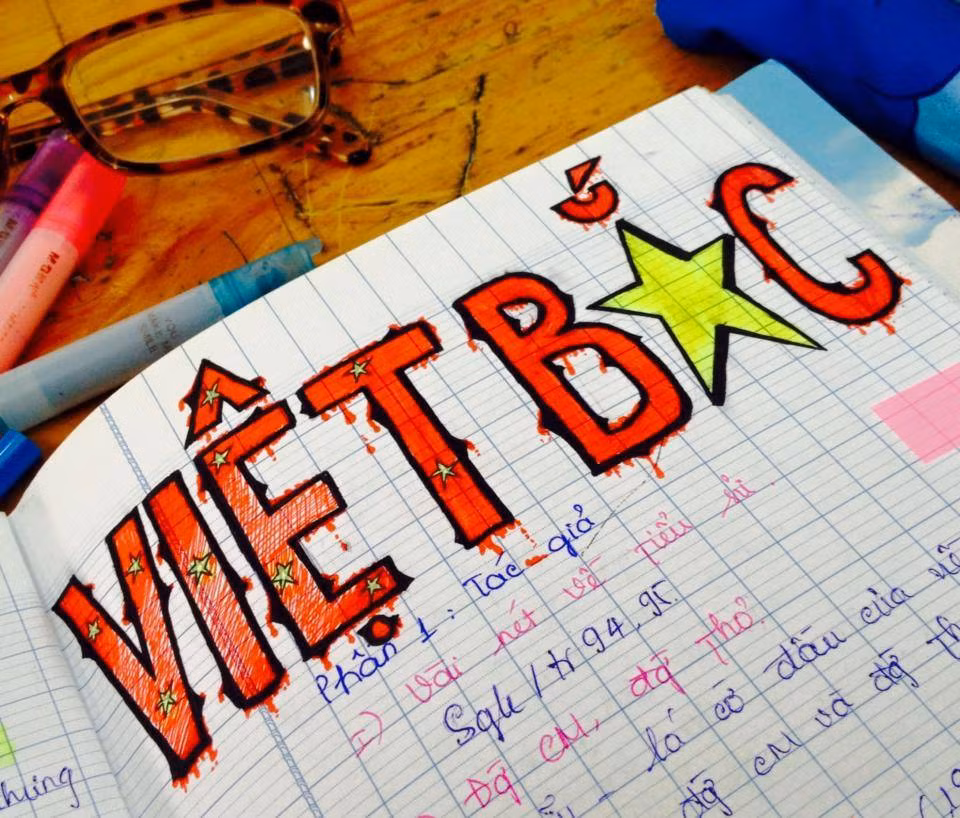 VIỆT BẮC
Phần 1: Tác giả
I) Vài nét về tiểu sử.
Sgk / tr 94, 95.
Đg CM, đg Thơ.
- lá cờ đầu của
đg CM và đg Th